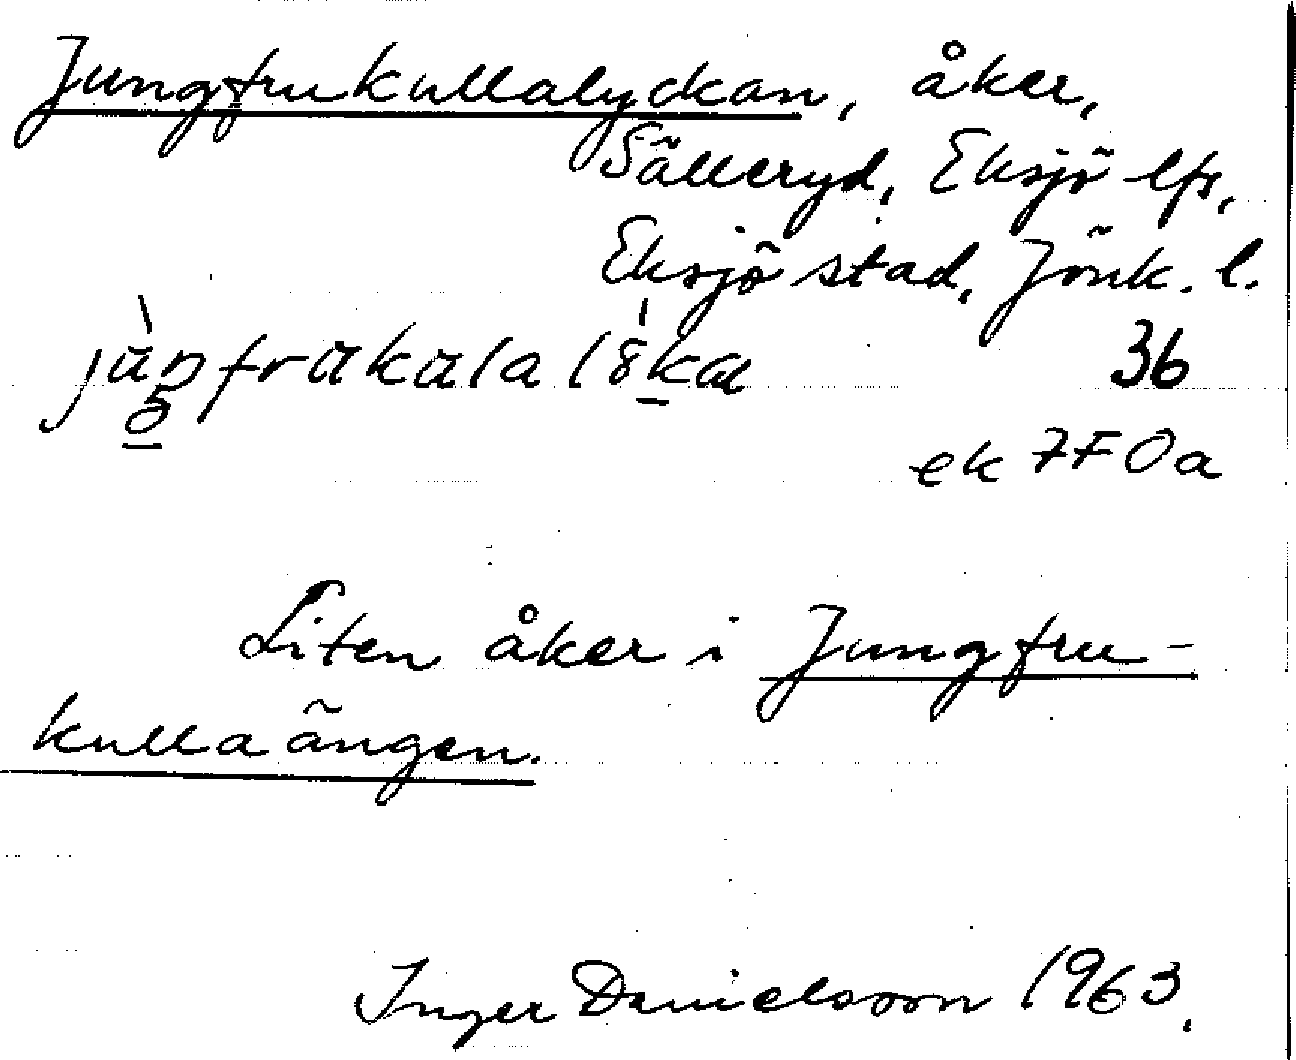 Jungfrukullalyckan, åker,
Sälleryd, Eksjö lfs,
Eksjö stad, Jönk. l.
36
ek 7F 0a
Liten åker i Jungfru-
kullaängen.
Inger Danielsson 1963.